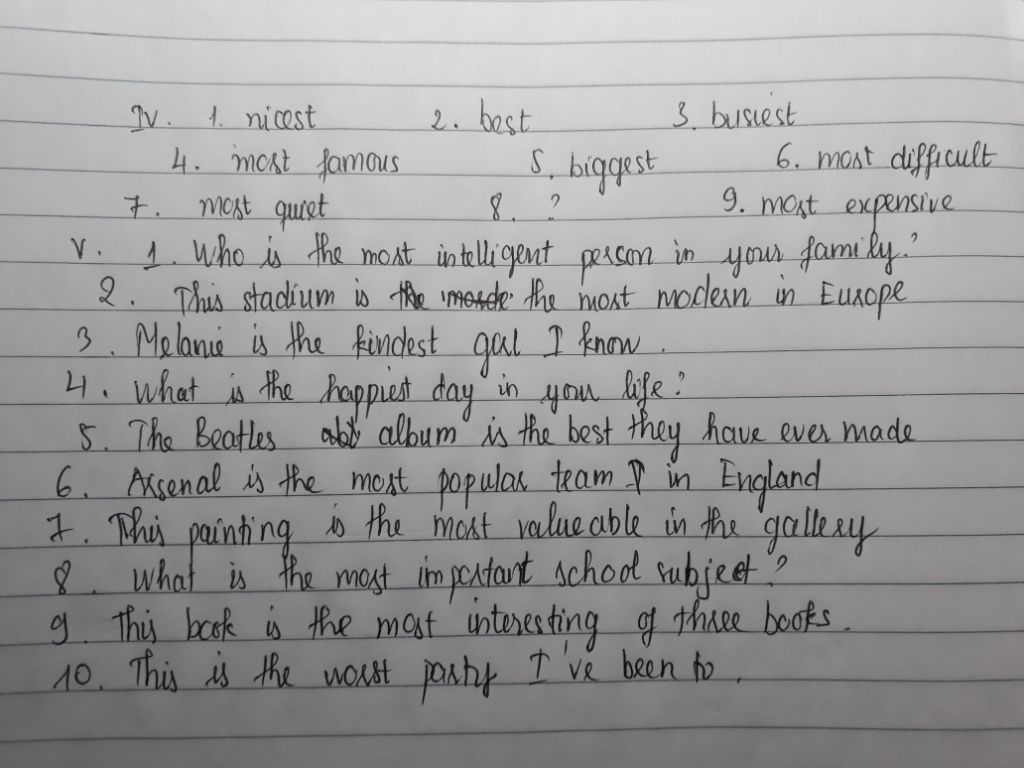 IV. 1. nicest 2. best 3. busiest
4. most famous 5. biggest 6. most difficult
7. most quiet 8. ? 9. most expensive
V. 1. Who is the most intelligent person in your family?
2. This stadium is the most modern in Europe
3. Melanie is the kindest I know.
4. What is the happiest day in your life?
5. The Beatles album is the best they have ever made
6. Arsenal is the most popular team in England
7. This painting is the most valueable in the gallery
8. What is the most important school subject?
9. This book is the most interesting of three books.
10. This is the worst party I've been to.